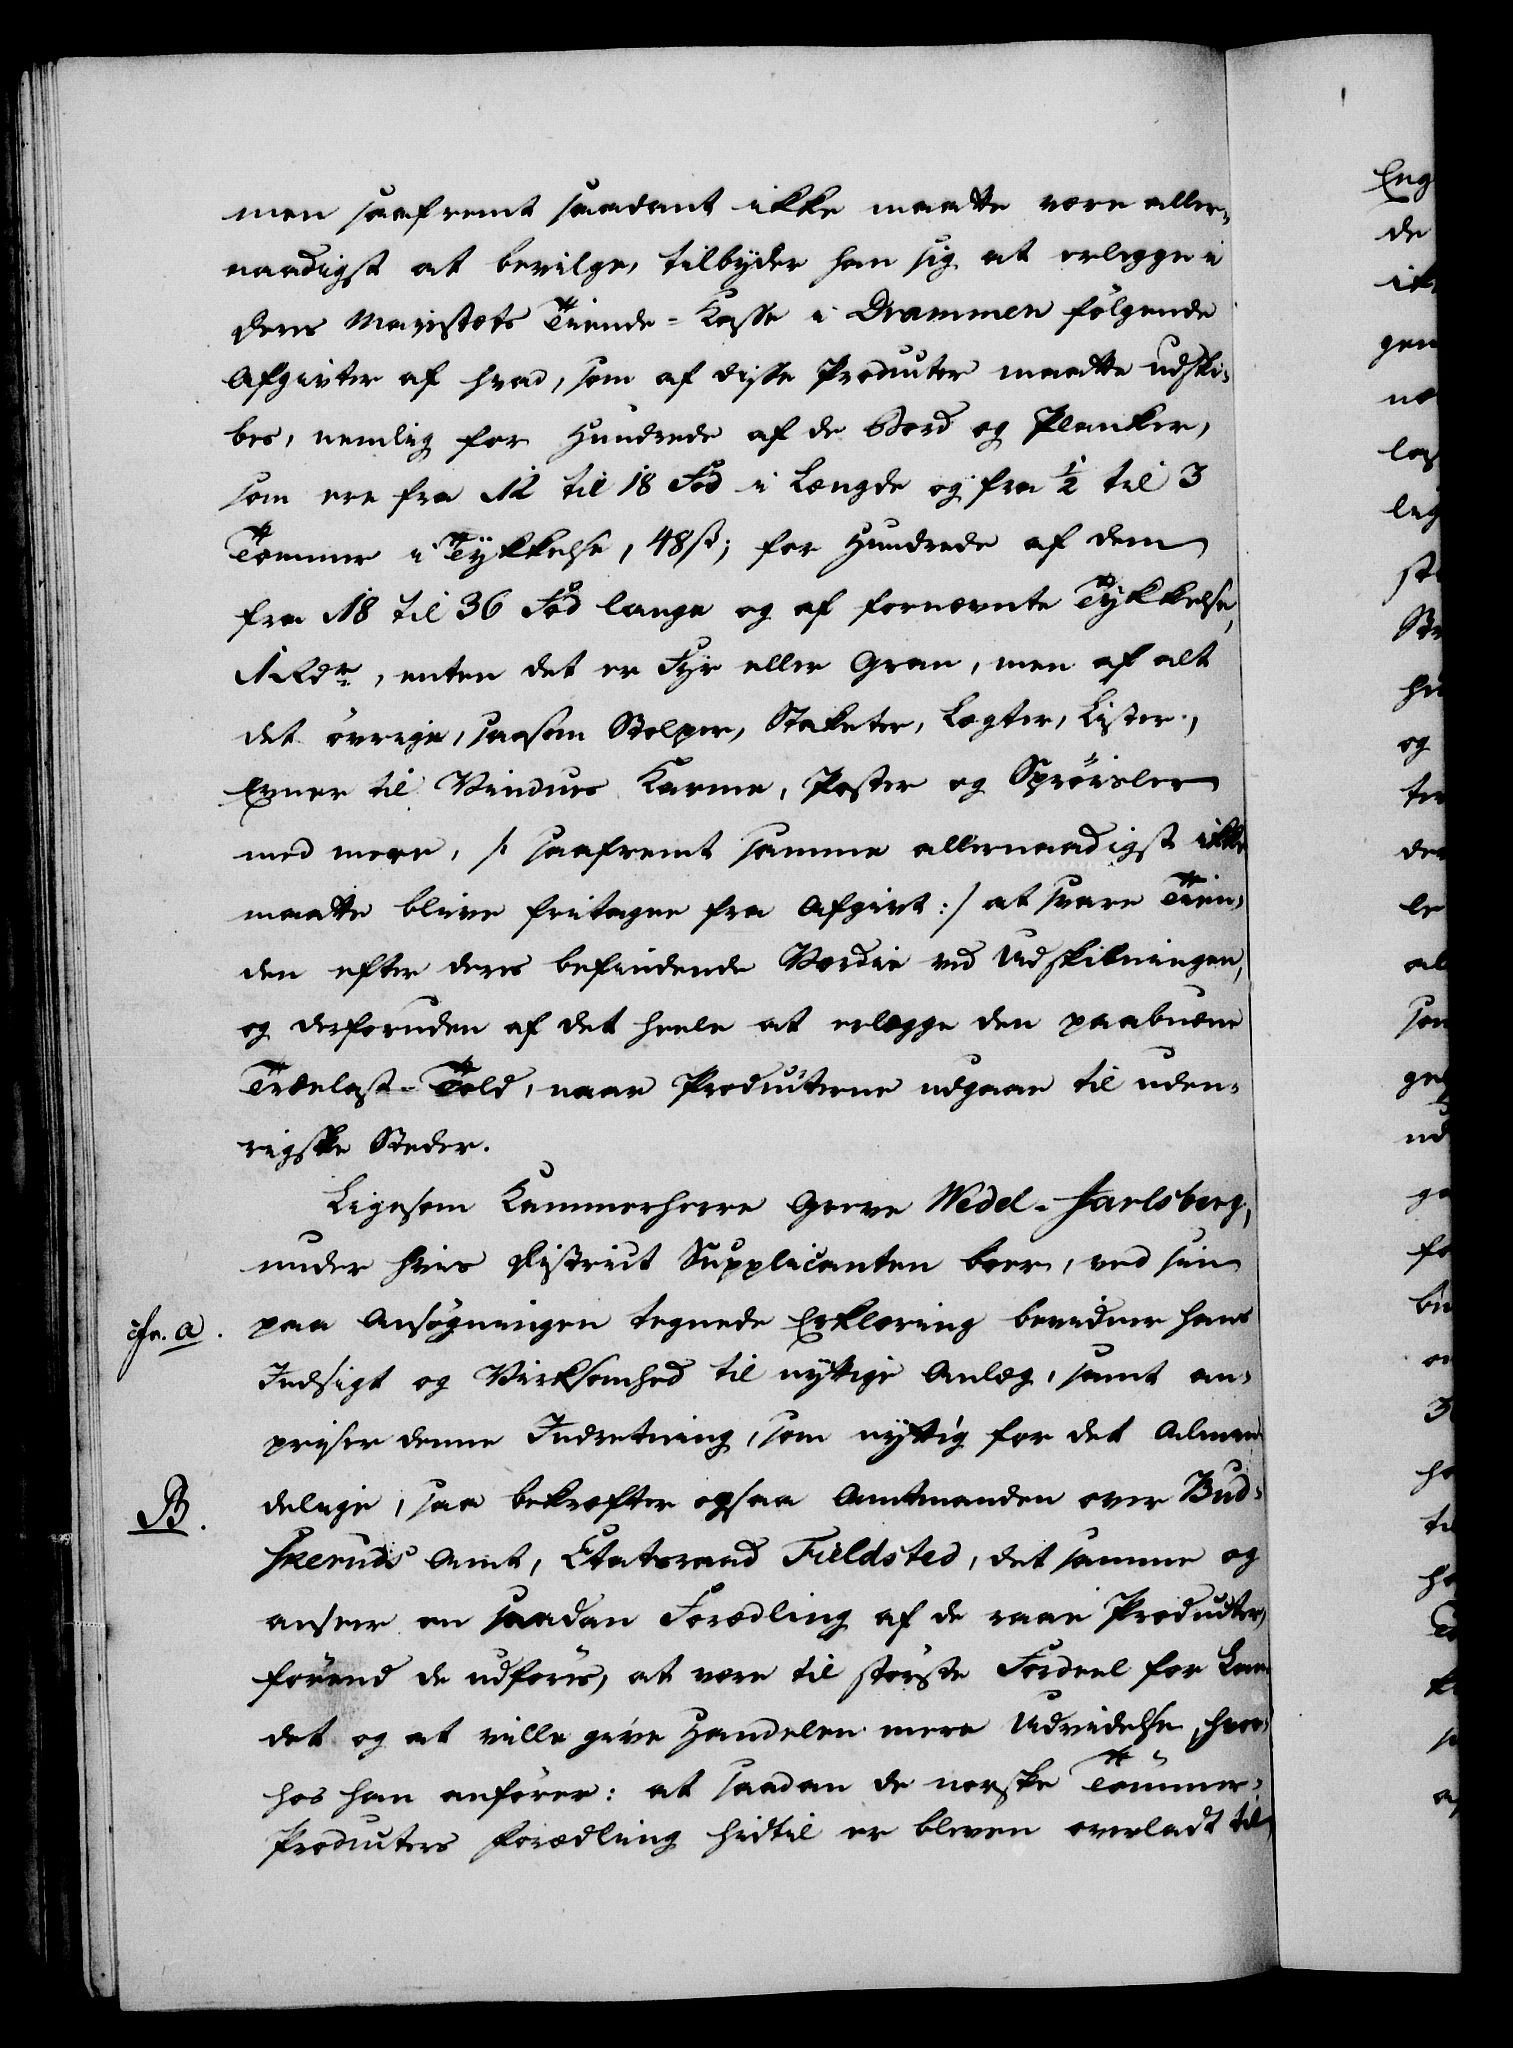 men saafremt saadant ikke maatte være aller-
naadigst at bevilge, tilbyder han sig at erlegge i
Deres Majestæts Tiende-Kasse i Drammen følgende
Afgivter af hvad, som af disse Producter maatte udski-
bes, nemlig for Hundrede af de Bord og Planker,
som ere fra 12 til 18 Fod i Længde og fra ½ til 3
Tommer i Tykkelse, 48 ß; for Hundrede af dem
fra 18 til 36 Fod lange og af fornævnte Tykkelse,
1 Rdr, enten det er Fyr eller Gran, men af alt
det övrige, saasom Stolper, Staketer, Lægter, Lister,
Emner til Vindues Karme, Poster og Sprösler
med mere, /: saafremt samme allernaadigst ikke
maatte blive fritagne fra Afgivt :/ at svare Tien-
den efter deres befindende Værdie ved Udskibningen,
og desforuden af det heele at erlægge den paabudne
Trælast-Told, naar Producterne udgaae til uden-
rigske Steder.
Ligesom Kammerherre Greve Wedel-Jarlsberg,
under hvis District Supplicanten boer, ved sin
cfr. a. paa Ansøgningen tegnede Erklæring bevidner hans
Indsigt og Virksomhed til nyttige Anlæg, samt an-
priser denne Indretning, som nyttig for det Almin-
B. delige, saa bekræfter ogsaa Amtmanden over Bud-
skeruds Amt, Etatsraad Fieldsted, det samme og
anseer en saadan Forædling af de raae Producter,
förend de udføres, at være til störste Fordeel for Lan-
det og at ville give Handelen mere Udvidelse, hvor-
hos han anfører: at saadan de norske Tömmer-
Producters Forædling hidtil er bleven overladt til